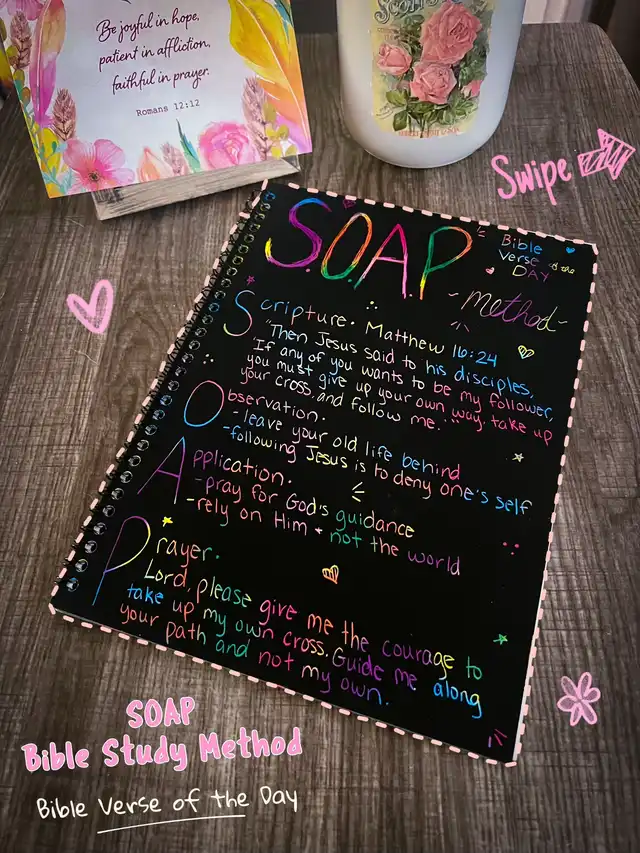 Be joyful in hope,
patient in affliction,
faithful in prayer.
Romans 12:12
Swipe
S.O.A.P
Bible
Verse of the
DAY
-method-
Scripture. Matthew 16:24
"Then Jesus said to his disciples,
'If any of you wants to be my follower,
you must give up your own way, take up
your cross, and follow me.'"
Observation.
-leave your old life behind
-following Jesus is to deny one's self
Application.
-pray for God's guidance
-rely on Him + not the world
Prayer.
Lord, please give me the courage to
take up my own cross. Guide me along
your path and not my own.
SOAP
Bible Study Method
Bible Verse of the Day